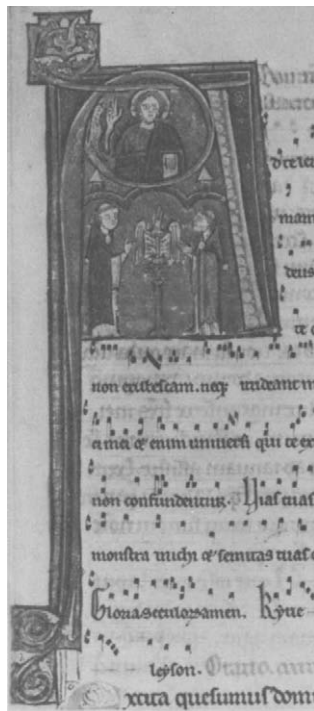 d te le
mam
deus
te c
non erubescam. neq irrideant m
ci mei et enim uniuersi qui te ex
non confundentur. Vias tuas
monstra michi et semitas tuas e
Gloria seculor amen. Kyrie
leyson.
xcita quesumus domi